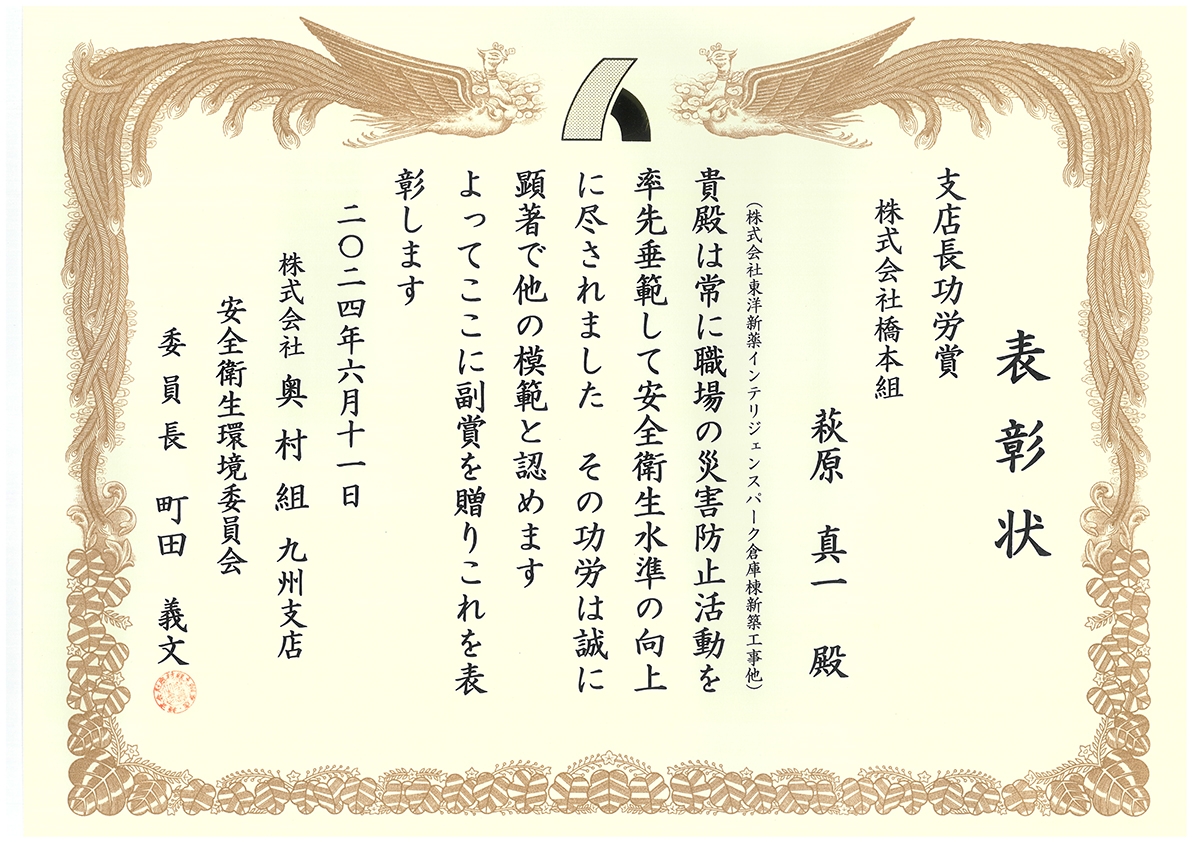 表彰状
支店長功労賞
株式会社橋本組
萩原 真一 殿
（株式会社東洋新薬インテリジェンスパーク倉庫棟新築工事他）
貴殿は常に職場の災害防止活動を
率先垂範して安全衛生水準の向上
に尽されました その功労は誠に
顕著で他の模範と認めます
よってここに副賞を贈りこれを表
彰します
二〇二四年六月十一日
株式会社 奥村組 九州支店
安全衛生環境委員会
委員長 町田 義文